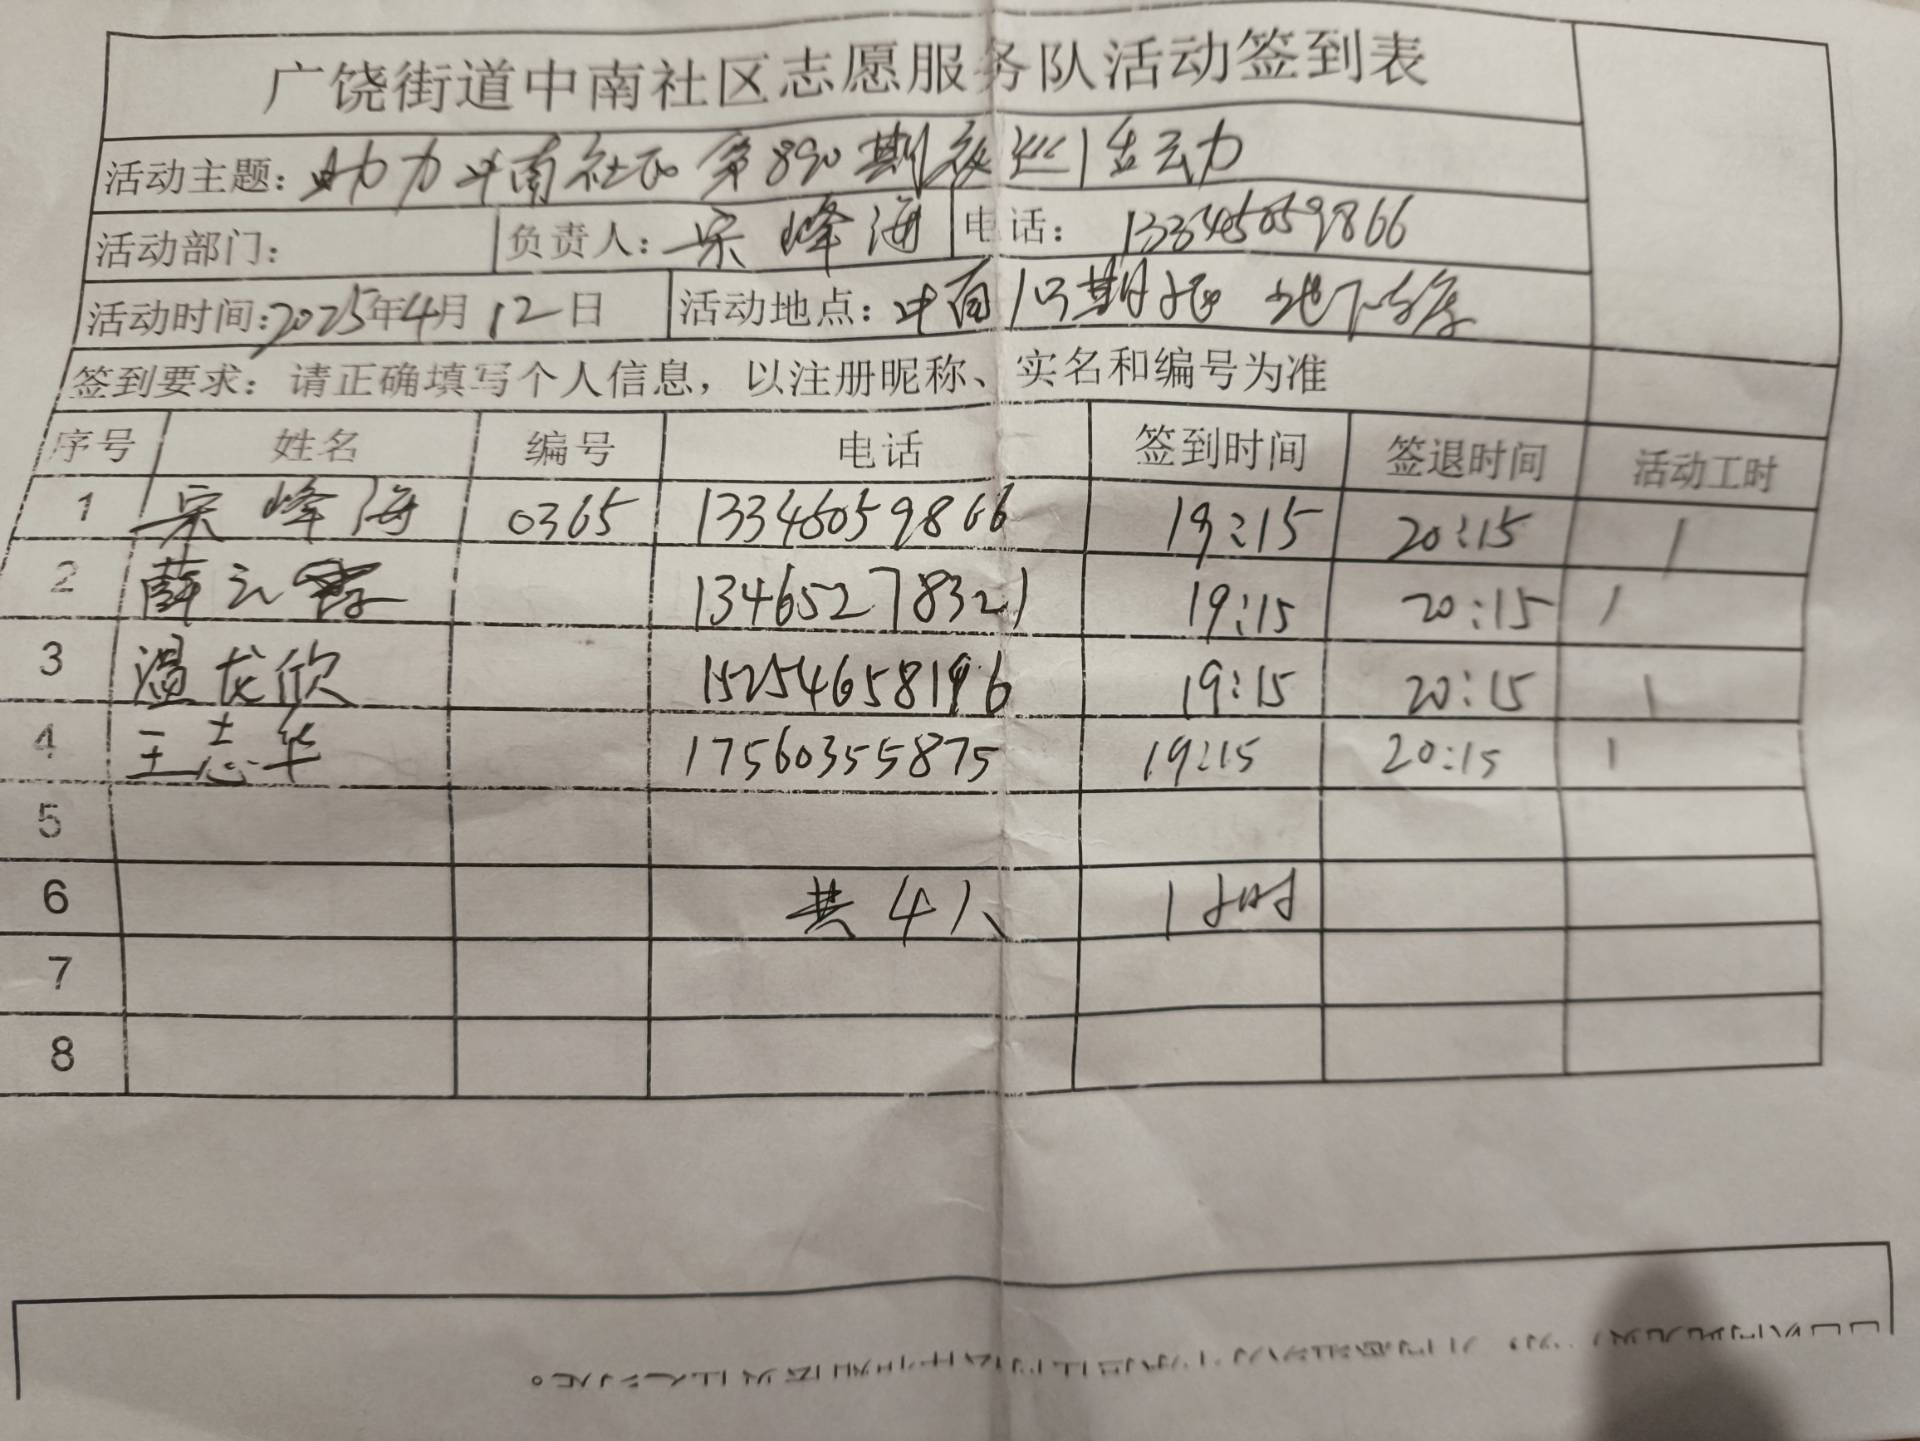 广饶街道中南社区志愿服务队活动签到表
活动主题：助力中南社区第890期夜巡活动
活动部门： 负责人：宋峰海 电话：13345059866
活动时间：2025年4月12日 活动地点：中南1 期 地下车库
签到要求：请正确填写个人信息，以注册昵称、实名和编号为准
序号 姓名 编号 电话 签到时间 签退时间 活动工时
1 宋峰海 0365 13346059866 19:15 20:15 1
2 薛云 13465278321 19:15 20:15 1
3 温龙欣 15254658196 19:15 20:15 1
4 王志华 17560355875 19:15 20:15 1
5
6 共4人 1小时
7
8